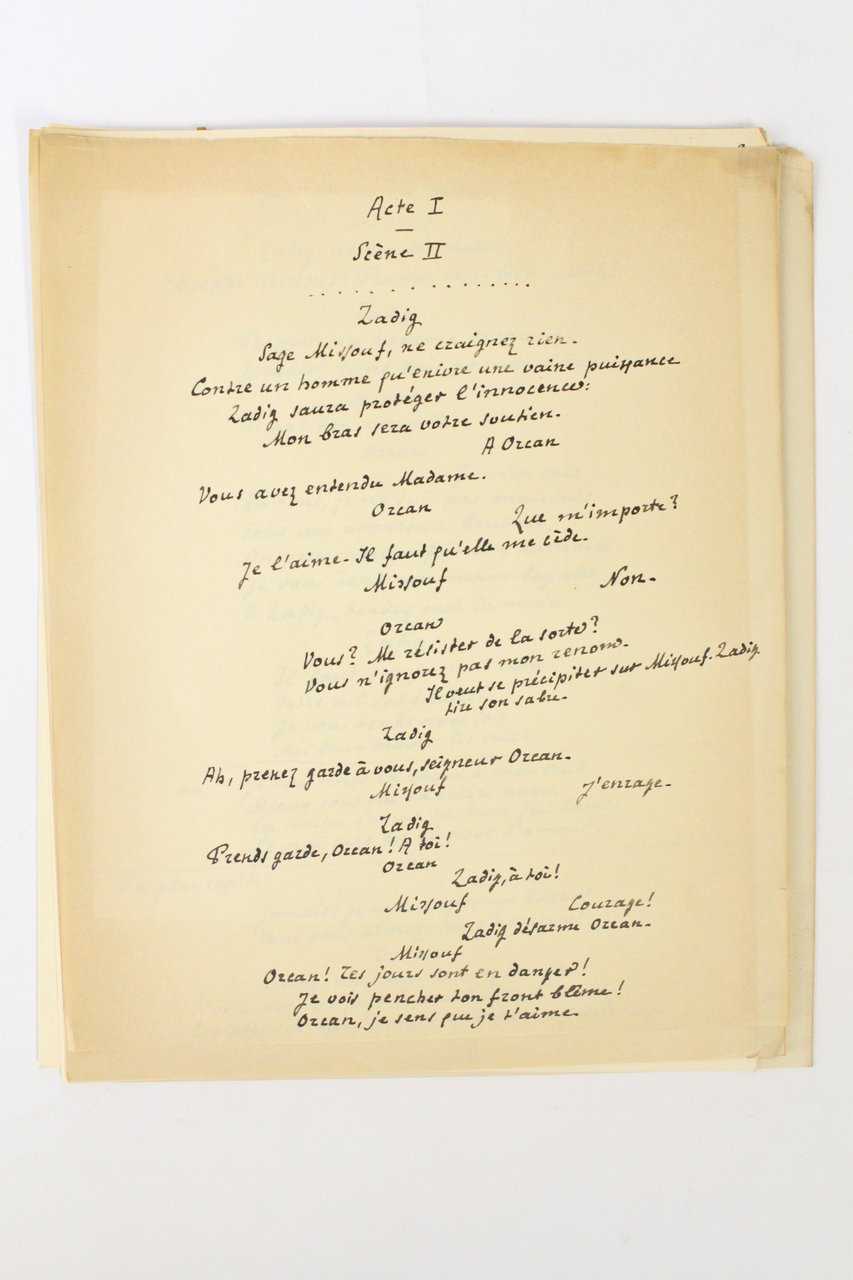 Acte I
—
Scène II
. . . . . . . . . . . . . . .
Zadig
Sage Missouf, ne craignez rien.
Contre un homme qu'enivre une vaine puissance
Zadig saura protéger l'innocence:
Mon bras sera votre soutien.
A Orcan
Vous avez entendu Madame.
Orcan
Que m'importe?
Je l'aime. Il faut qu'elle me cède.
Missouf
Non.
Orcan
Vous? Me résister de la sorte?
Vous n'ignorez pas mon renom.
Il veut se précipiter sur Missouf. Zadig
tire son sabre.
Zadig
Ah, prenez garde à vous, seigneur Orcan.
Missouf
J'enrage.
Zadig
Prends garde, Orcan! A toi!
Orcan
Zadig, à toi!
Missouf
Courage!
Zadig désarme Orcan.
Missouf
Orcan! Tes jours sont en danger!
Je vois pencher ton front blême!
Orcan, je sens que je t'aime.